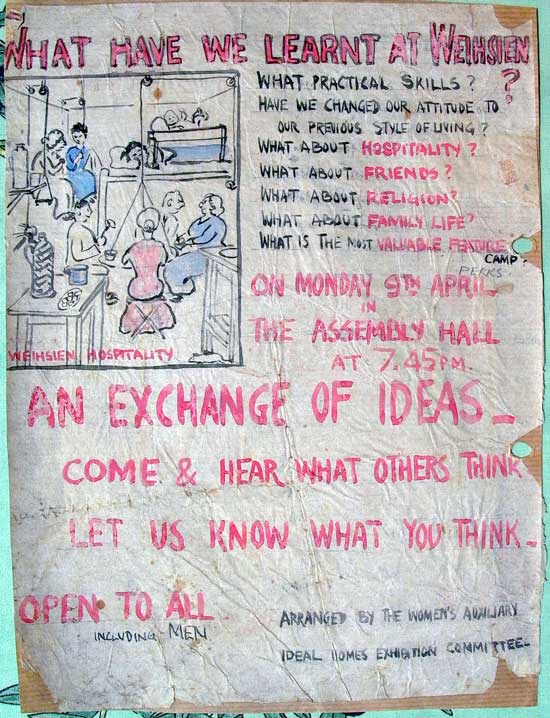 WHAT HAVE WE LEARNT AT WEIHSIEN
?
WHAT PRACTICAL SKILLS?
HAVE WE CHANGED OUR ATTITUDE TO
OUR PREVIOUS STYLE OF LIVING?
WHAT ABOUT HOSPITALITY?
WHAT ABOUT FRIENDS?
WHAT ABOUT RELIGION?
WHAT ABOUT FAMILY LIFE?
WHAT IS THE MOST VALUABLE FEATURE
CAMP?
PERKS
WEIHSIEN HOSPITALITY
ON MONDAY 9TH APRIL
IN
THE ASSEMBLY HALL
AT 7.45 PM.
AN EXCHANGE OF IDEAS_
COME & HEAR WHAT OTHERS THINK
LET US KNOW WHAT YOU THINK_
OPEN TO ALL.
INCLUDING MEN
ARRANGED BY THE WOMEN'S AUXILIARY
IDEAL HOMES EXHIBITION COMMITTEE_